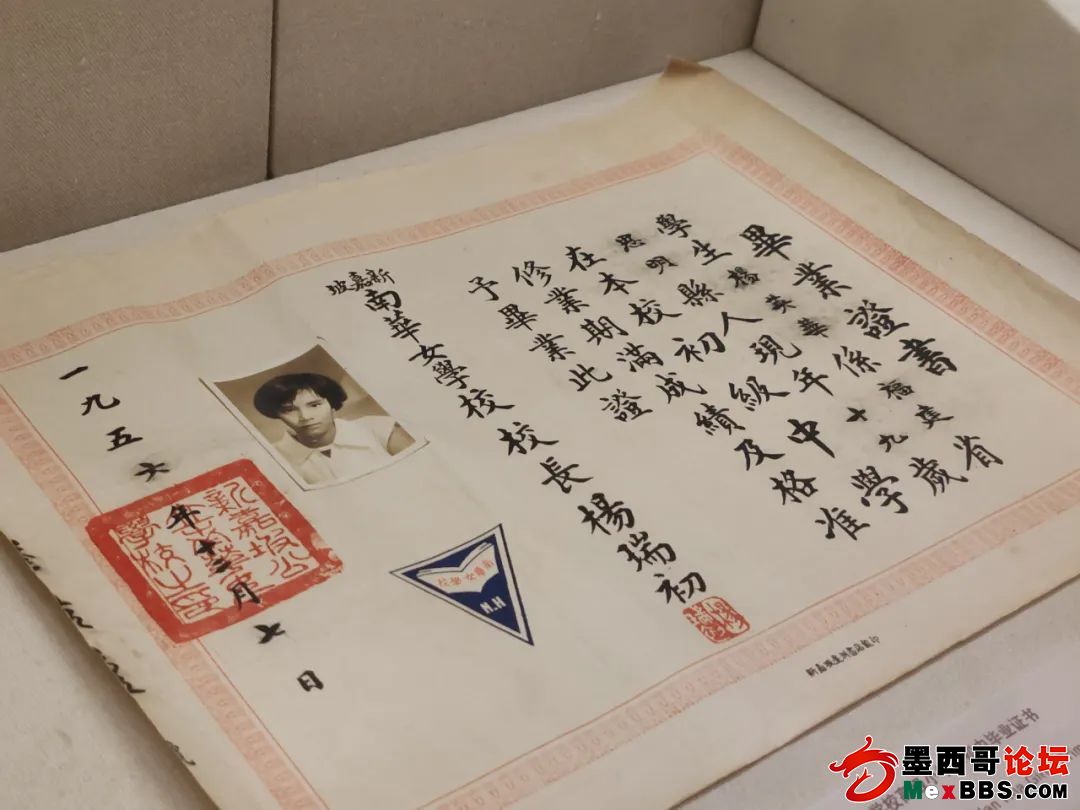 畢業證書
學生楊英華係福建省
思明縣人現年十九歲
在本校初級中學
修業期滿成績及格准
予畢業此證
新嘉坡南華女學校校長楊瑞初
一九五六年十二月七日
新嘉坡公
學校之印
南華女學校
毕业证书
墨西哥论坛
MexBBS.com